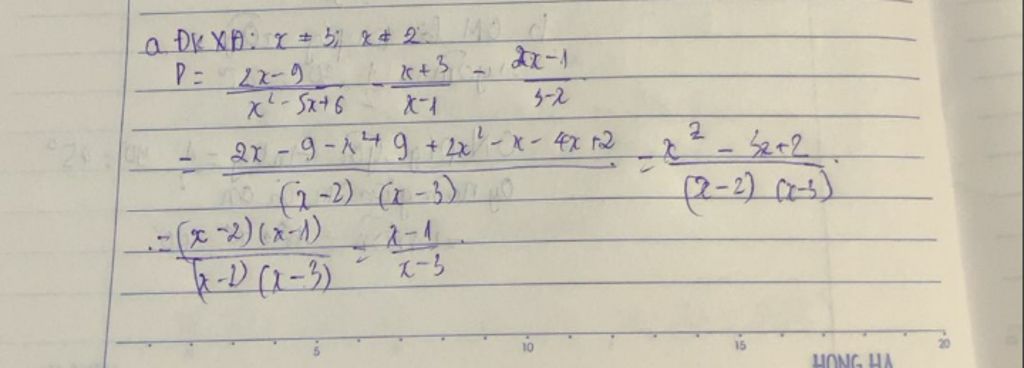 a ĐKXĐ: x ≠ 3; x ≠ 2.
P = \frac{2x-9}{x^2-5x+6} - \frac{x+3}{x-1} - \frac{2x-1}{3-x}
= \frac{2x-9-x^2+9+2x^2-x-4x+2}{(x-2)(x-3)} = \frac{x^2-3x+2}{(x-2)(x-3)}.
= \frac{(x-2)(x-1)}{(x-2)(x-3)} = \frac{x-1}{x-3}.
5 10 15 20
HONG HA